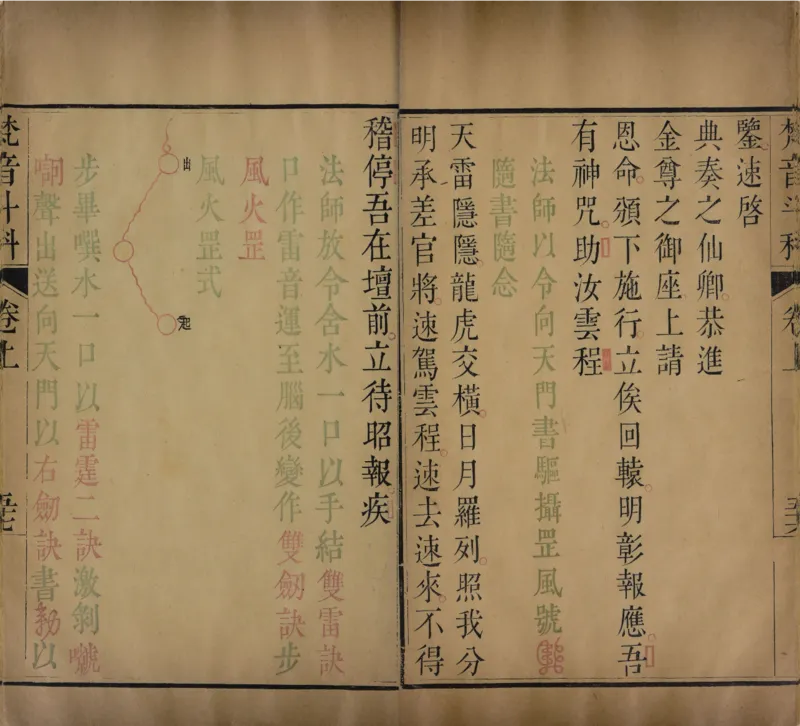 鑒速啓
典奏之仙卿恭進
金尊之御座上請
恩命頒下施行立俟回轅明彰報應吾
有神咒助汝雲程
法師以令向天門書驅攝罡風號
隨書隨念
天雷隱隱龍虎交橫日月羅列照我分
明承差官將速駕雲程速去速來不得
稽停吾在壇前立待昭報疾
法師放令含水一口以手結雙雷訣
口作雷音運至腦後變作雙劒訣步
風火罡
風火罡式
出
起
步畢噀水一口以雷霆二訣激剝
聲出送向天門以右劒訣書勑以
梵音斗科
卷上
五十六
梵音斗科
卷上
五十七